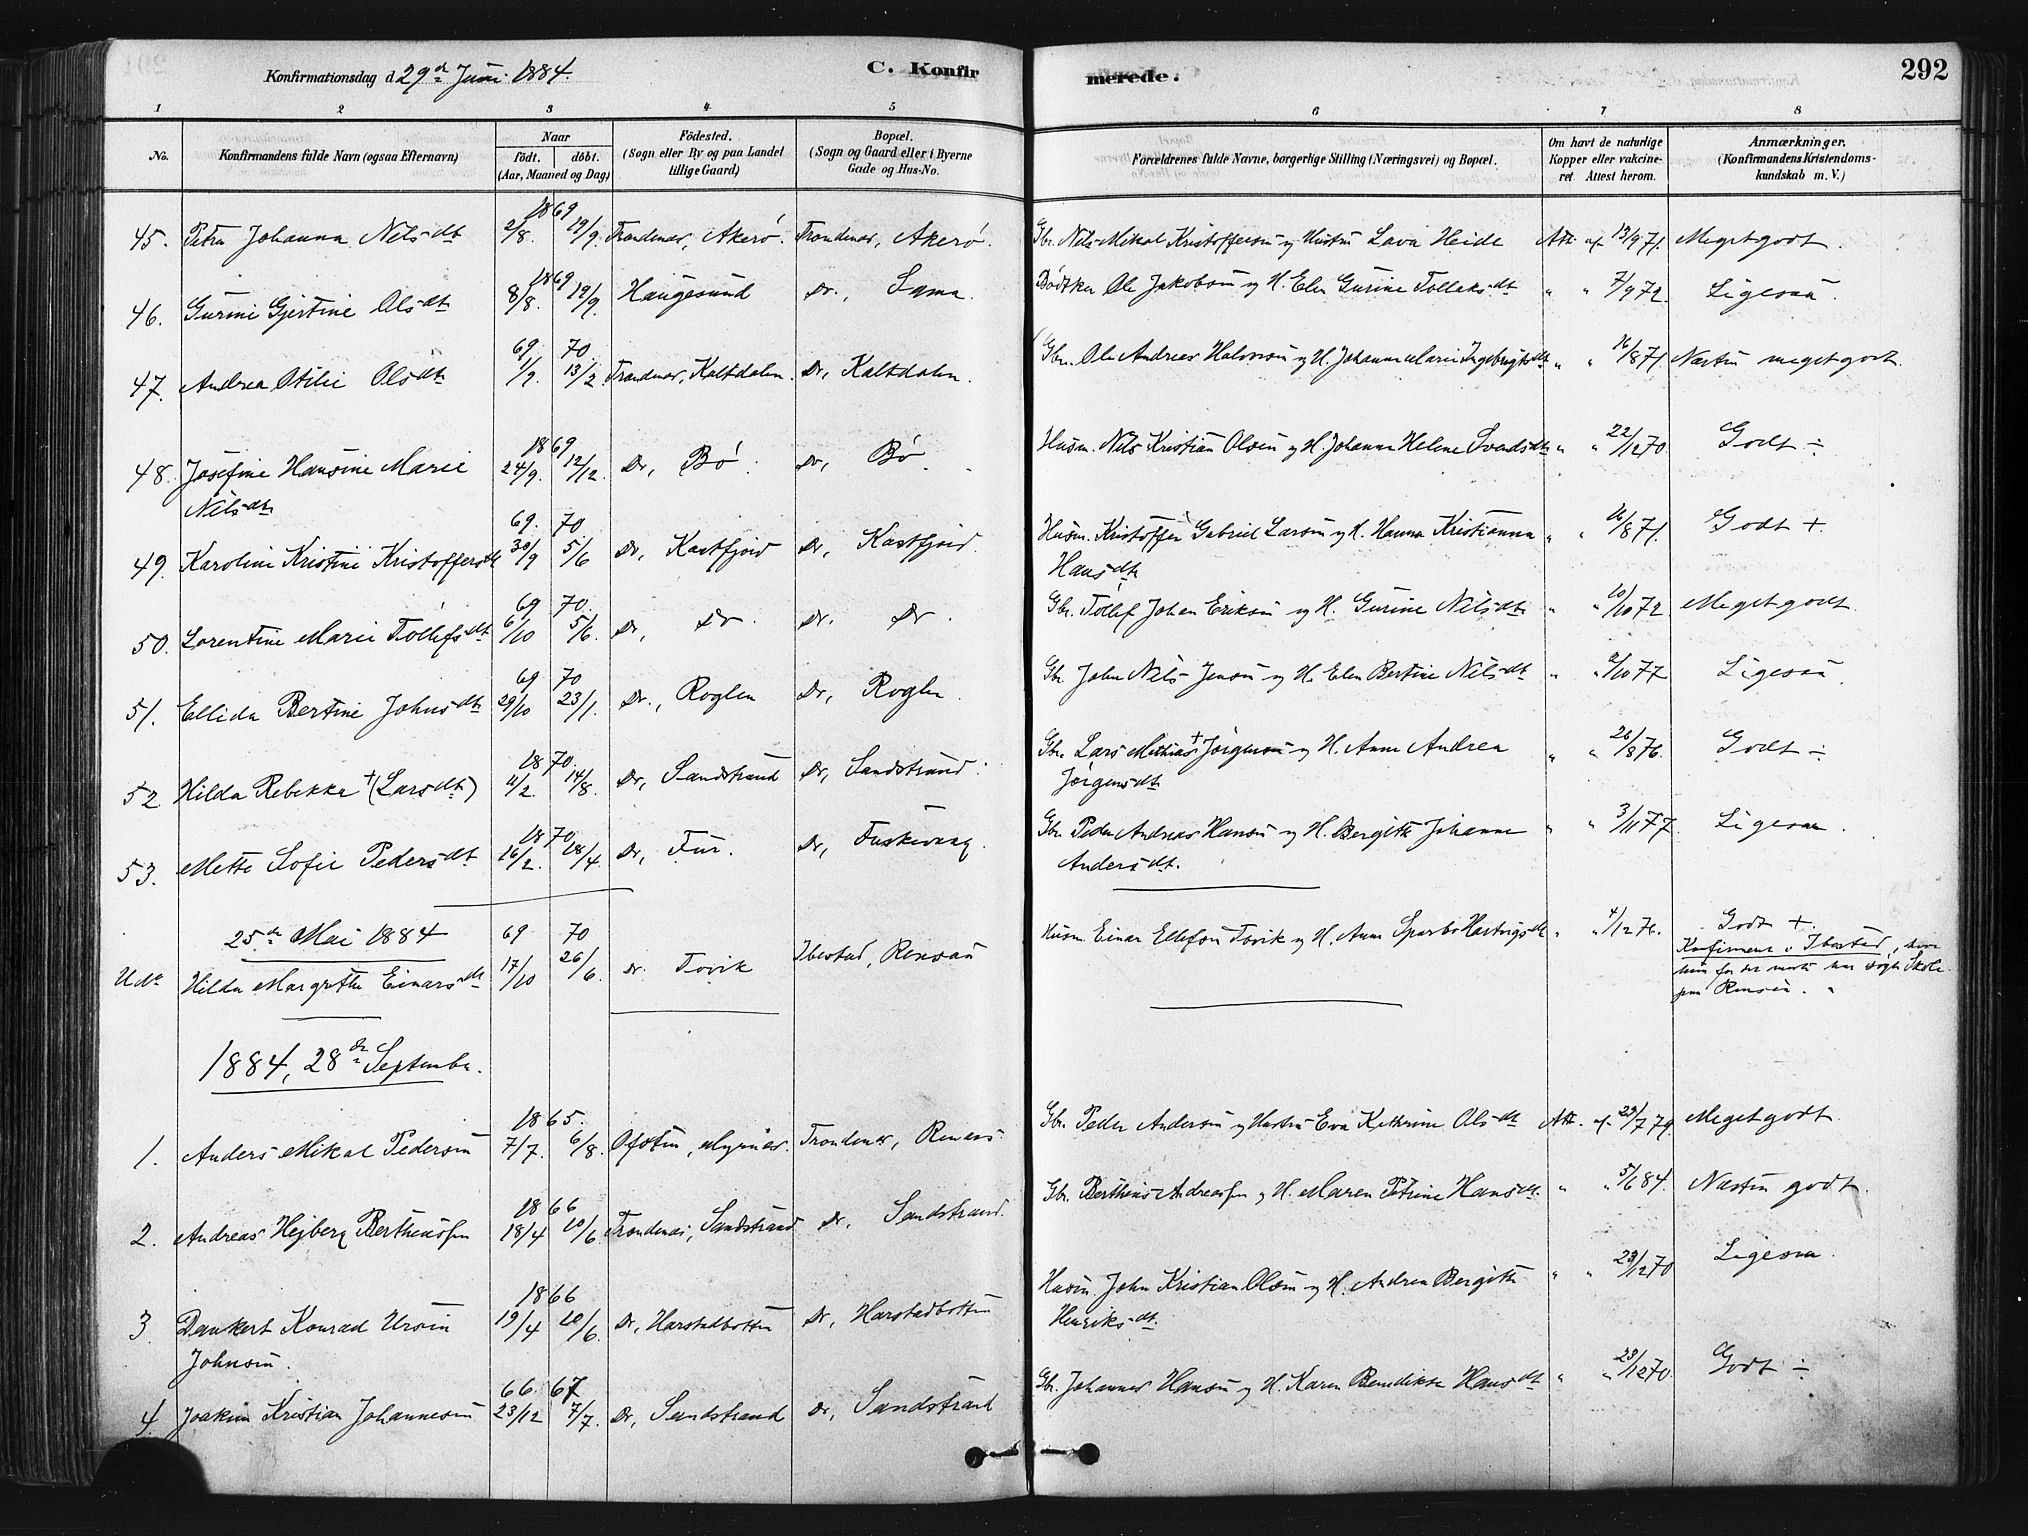 Konfirmationsdag d 29de Juni 1884. C. Konfirmerede. 292
1 2 3 4 5 6 7 8
No. Konfirmandens fulde Navn (ogsaa Efternavn) Naar født. døbt. (Aar, Maaned og Dag) Fødested. (Sogn eller By og paa Landet tillige Gaard) Bopæl. (Sogn og Gaard eller i Byerne Gade og Hus-No. Forældrenes fulde Navne, borgerlige Stilling (Næringsvei) og Bopæl. Om havt de naturlige Kopper eller vakcineret. Attest herom. Anmærkninger. (Konfirmandens Kristendomskundskab m. V.)
45. Petra Johanna Nilsdt 1869 2/8. 19/9. Trondenæs, Akerø. Trondenæs, Akerø. Gbr. Nils Mikal Kristoffersen og Hustru Lava Heide Att. af 13/9 71. Meget godt.
46. Gurine Gjertine Olsdt 1869 8/8. 19/9. Haugesund Do., Sama. Bødtker Ole Jakobsen og H. Elen Gurine Tollaksdt " " 7/9 72. Ligesaa.
47. Andrea Otilie Olsdt 69 1/9. 70 13/2 Trondenæs, Kaltdalen. Do, Kaltdalen. Gbr. Ole Andreas Halvorsen og H. Johanna Marie Ingebrigtsdt " " 16/8 71. Næsten meget godt.
48. Josefine Hansine Marie 1869 24/9. 12/12. Do, Bø. Do, Bø Husm. Nils Kristian Olsen og H. Johanna Helene Svendsdt " " 22/12 70. Godt ÷
Nilsdt
49. Karoline Kristine Kristoffersdt 69. 30/9 70 5/6 Do, Kastfjord Do, Kastfjord. Husm. Kristoffer Gabriel Larsen og H. Hanna Kristianna " " 26/8 71. Godt +
Hansdt
50. Lorentine Marie Tollefsdt 69 6/10 70. 5/6. Do, Do. Do. Do. Gbr. Tollef Johan Eriksen og H. Gurine Nilsdt " " 10/10 72. Meget godt.
51. Ellida Bertine Johnsdt 69 29/10 70 23/1. Do., Roglen Do, Roglen. Gbr. John Nils Jensen og H. Elen Bertine Nilsdt " " 2/10 77 Ligesaa
52. Hilda Rebekka + (Larsdt) 1870. 4/2. 14/8. Do, Sandstrand Do, Sandstrand. Gbr. Lars Mathias + Jørgensen og H. Anne Andrea " " 26/8 76. Godt ÷
Jørgensdt
53. Mette Sofie Pedersdt 1870 16/2. 18/4. Do, Fur. Do, Fuskevaag. Gbr. Peder Andreas Hansen og H. Bergitte Johanna " " 3/11 77. Ligesaa.
Andersdt.
25de Mai 1884
Hilda Margrethe Einarsdt 69 17/10 70 26/6. Do. Tovik Ibestad, Rensaa Husm. Einar Ellefsen Tovik og H. Anne Sparbo Hartvigsdt " " 4/12 76. Godt +.
Konfirmeret i Ibestad, hvor
hun for det meste har søgt Skole
paa Rensaa.
1884, 28de September.
1. Anders Mikal Pedersen 1865. 7/7. 6/8. Ofoten, Trondenæs, Renaas. Gbr. Peder Andersen og Hustru Eva Kathrine Olsdt Att. af 23/7 79. Meget godt.
2. Andreas Hejberg Berthenssen 1866 18/4 10/6. Trondenæs, Sandstrand Do. Sandstrand. Gbr. Berthens Andreassen og H. Maren Petrine Hansdt. " " 5/6 84. Næsten godt.
3. Dankert Konrad Ursin 1866 19/4 10/6. Do, Harstadbotten Do, Harstadbotten Husm. John Kristian Olsen og H. Andrea Bergitte " " 23/12 70 Ligesaa.
Johnsen. Henriksdt.
4. Joakim Kristian Johannesen 66. 23/12 67 7/7. Do, Sandstrand Do, Sandstrand Gbr. Johannes Hansen og H. Karen Benedikte Hansdt " " 23/12 70. Godt ÷